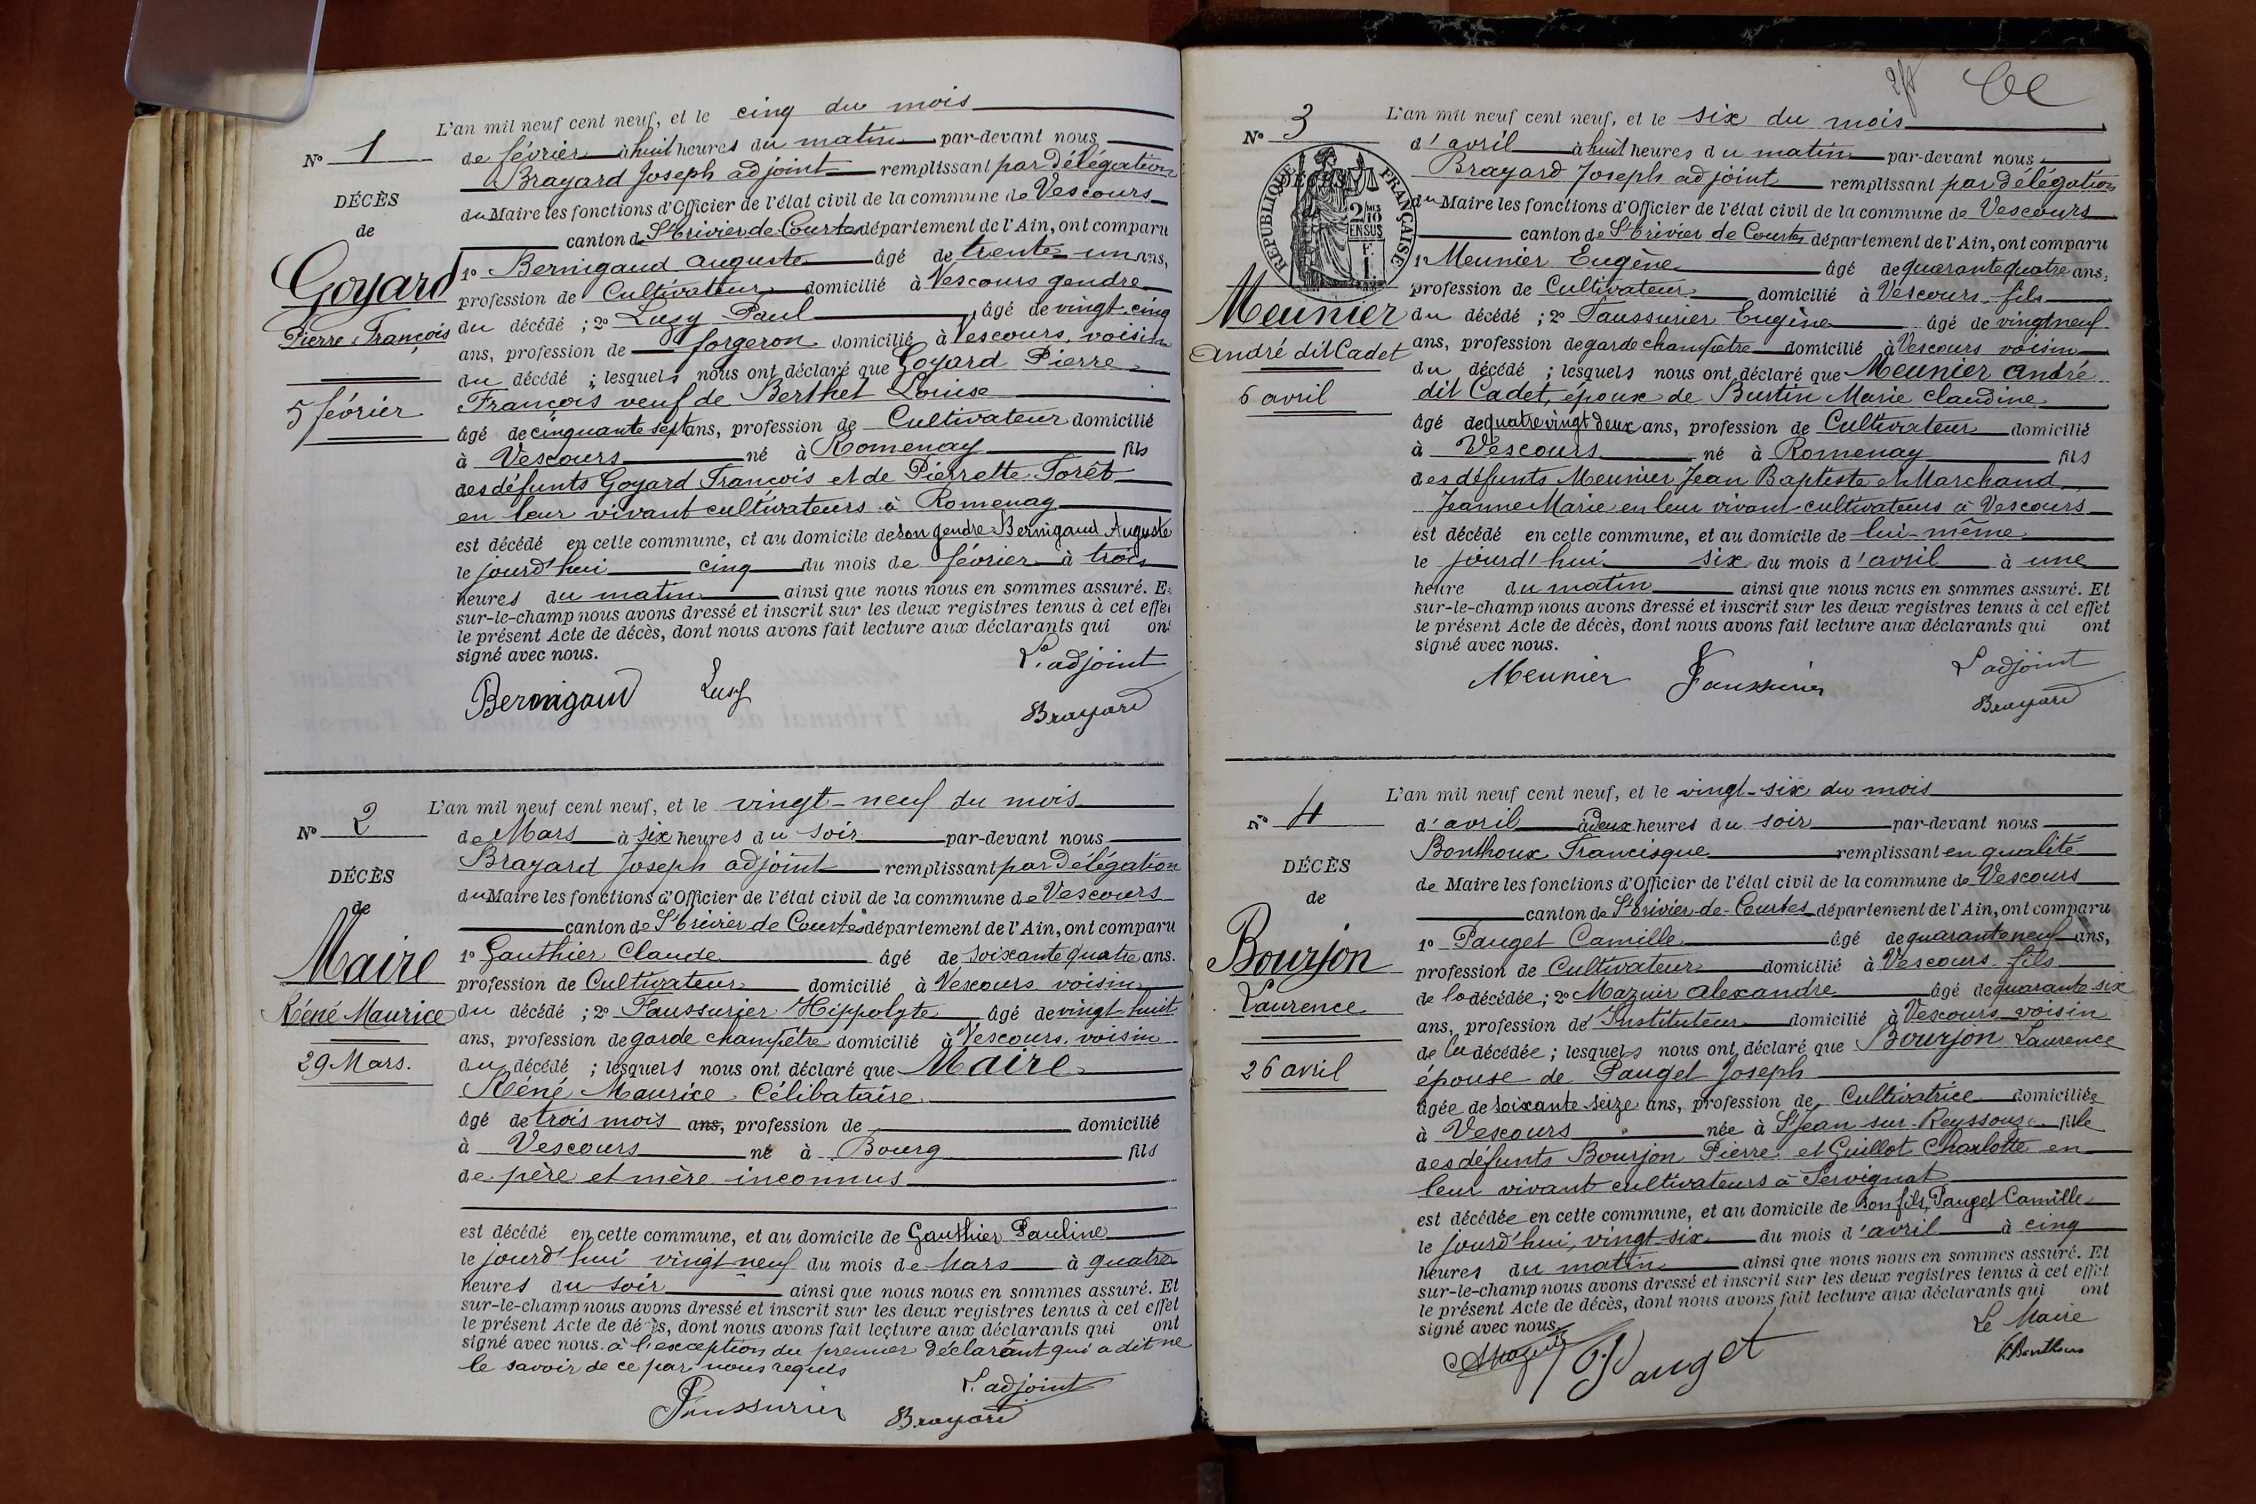 L'an mil neuf cent neuf, et le cinq du mois
N° 1
de février à huit heures du matin par-devant nous
Brayard Joseph adjoint remplissant par délégation
DÉCÈS
du Maire les fonctions d'Officier de l'état civil de la commune de Vescours
de
canton de St Trivier de Courtes département de l'Ain, ont comparu
Goyard
1° Bernigaud Auguste âgé de trente-un ans,
profession de Cultivateur domicilié à Vescours gendre
Pierre François
du décédé ; 2° Lusy Paul, âgé de vingt-cinq
ans, profession de forgeron domicilié à Vescours, voisin
du décédé ; lesquels nous ont déclaré que Goyard Pierre
5 février
François veuf de Berthet Louise
âgé de cinquante sept ans, profession de Cultivateur domicilié
à Vescours né à Romenay fils
des défunts Goyard François et de Pierrette Forêt
en leur vivant cultivateurs à Romenay
est décédé en cette commune, et au domicile de son gendre Bernigaud Auguste
le jourd'hui cinq du mois de février à trois
heures du matin ainsi que nous nous en sommes assuré. E
sur-le-champ nous avons dressé et inscrit sur les deux registres tenus à cet effet
le présent Acte de décès, dont nous avons fait lecture aux déclarants qui ont
signé avec nous.
L'adjoint
Bernigaud Lusy
Brayard
L'an mil neuf cent neuf, et le vingt-neuf du mois
N° 2
de Mars à six heures du soir par-devant nous
Brayard Joseph adjoint remplissant par délégation
DÉCÈS
du Maire les fonctions d'Officier de l'état civil de la commune de Vescours
de
canton de St Trivier de Courtes département de l'Ain, ont comparu
Maire
1° Gauthier Claude âgé de soixante quatre ans.
profession de Cultivateur domicilié à Vescours voisin
Réné Maurice
du décédé ; 2° Faussurier Hippolyte âgé de vingt-huit
ans, profession de garde champêtre domicilié à Vescours, voisin
29 Mars.
du décédé ; lesquels nous ont déclaré que Maire
Réné Maurice Célibataire
âgé de trois mois ans, profession de domicilié
à Vescours né à Bourg fils
de père et mère inconnus
est décédé en cette commune, et au domicile de Gauthier Pauline
le jourd'hui vingt neuf du mois de Mars à quatre
heures du soir ainsi que nous nous en sommes assuré. Et
sur-le-champ nous avons dressé et inscrit sur les deux registres tenus à cet effet
le présent Acte de décès, dont nous avons fait lecture aux déclarants qui ont
signé avec nous. à l'exception du premier déclarant qui a dit ne
le savoir de ce par nous requis
L'adjoint
Faussurier Brayard
L'an mil neuf cent neuf, et le six du mois
N° 3
d'avril à huit heures du matin par-devant nous
Brayard Joseph adjoint remplissant par délégation
DÉCÈS
RÉPUBLIQUE FRANÇAISE
du Maire les fonctions d'Officier de l'état civil de la commune de Vescours
canton de St Trivier de Courtes département de l'Ain, ont comparu
1° Meunier Eugène âgé de quarante quatre ans,
profession de Cultivateur domicilié à Vescours fils
Meunier
du décédé ; 2° Faussurier Eugène âgé de vingt neuf
André dit Cadet
ans, profession de garde champêtre domicilié à Vescours voisin
du décédé ; lesquels nous ont déclaré que Meunier André
6 avril
dit Cadet, époux de Burtin Marie Claudine
âgé de quatre vingt deux ans, profession de Cultivateur domicilié
à Vescours né à Romenay fils
des défunts Meunier Jean Baptiste et Marchand
Jeanne Marie en leur vivant cultivateurs à Vescours
est décédé en cette commune, et au domicile de lui-même
le jourd'hui six du mois d'avril à une
heure du matin ainsi que nous nous en sommes assuré. Et
sur-le-champ nous avons dressé et inscrit sur les deux registres tenus à cet effet
le présent Acte de décès, dont nous avons fait lecture aux déclarants qui ont
signé avec nous.
L'adjoint
Meunier Faussurier
Brayard
L'an mil neuf cent neuf, et le vingt-six du mois
N° 4
d'avril à deux heures du soir par-devant nous
Bonthoux Francisque remplissant en qualité
DÉCÈS
de Maire les fonctions d'Officier de l'état civil de la commune de Vescours
de
canton de St Trivier-de-Courtes département de l'Ain, ont comparu
Bourjon
1° Pauget Camille âgé de quarante neuf ans,
profession de Cultivateur domicilié à Vescours fils
Laurence
de la décédée ; 2° Mazuir Alexandre âgé de quarante-six
ans, profession de Instituteur domicilié à Vescours voisin
de la décédée ; lesquels nous ont déclaré que Bourjon Laurence
26 avril
épouse de Pauget Joseph
âgée de soixante-seize ans, profession de Cultivatrice domiciliée
à Vescours née à St Jean-sur-Reyssouze fille
des défunts Bourjon Pierre et Guillot Charlotte en
leur vivant cultivateurs à Servignat
est décédée en cette commune, et au domicile de son fils, Pauget Camille
le jourd'hui, vingt-six du mois d'avril à cinq
heures du matin ainsi que nous nous en sommes assuré. Et
sur-le-champ nous avons dressé et inscrit sur les deux registres tenus à cet effet
le présent Acte de décès, dont nous avons fait lecture aux déclarants qui ont
signé avec nous.
Le Maire
AMazuir Pauget
F. Bonthoux